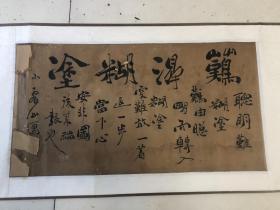 難得糊塗
聰明難
糊塗
難由聰
明而轉入
糊塗
更難放一著
退一步
當下心
安非圖
後來福
報也